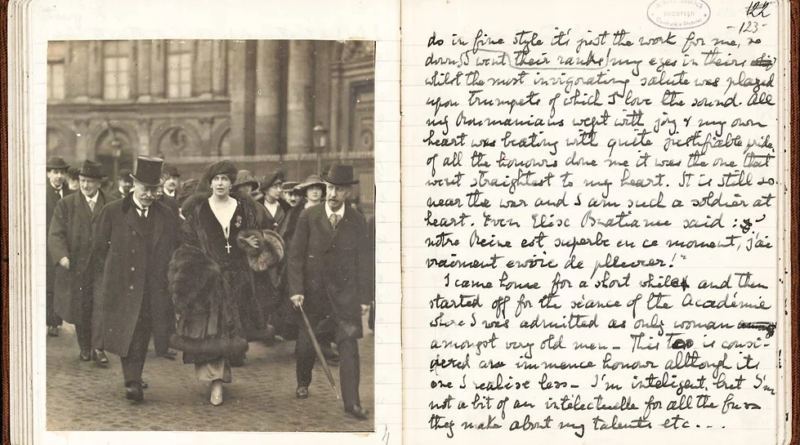 -123-
do in fine style it's just the work for me, so
down I went (their ranks) my eyes in theirs
whilst the most invigorating salute was played
upon trumpets of which I love the sound. All
my Roumanians wept with joy & my own
heart was beating with quite justifiable pride,
of all the honours done me it was the one that
went straightest to my heart. It is still so
near the war and I am such a soldier at
heart. Even Elise Bratianu said : "
notre Reine est superbe en ce moment, j'ai
vraiment envie de pleurer!"
I came home for a short while and then
started off for the séance of the Académie
where I was admitted as only woman
amongst very old men - This too is consi-
dered an immence honour although its
one I realise less - I'm inteligent, but I'm
not a bit of an intelectuelle for all the fuss
they make about my talents etc...